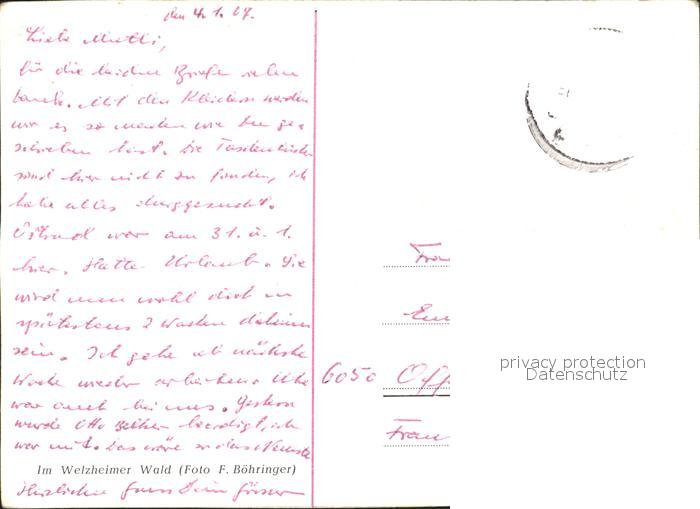 den 4. 1. 67.
Liebe Mutti,
für die beiden Briefe vielen
Dank. Mit den Kleidern werden
wir es so machen wie Du ge-
schrieben hast. Die Taschentücher
sind hier nicht zu finden, ich
habe alles durchgesucht.
war am 31. u. 1.
hier. Hatte Urlaub. Sie
wird nun wohl dort in
spätestens 2 Wochen daheim
sein. Ich gehe ab nächste
Woche wieder arbeiten. Ute
war auch bei uns. Gestern
wurde Otto beerdigt, ich
war mit. Das wäre so das Neueste
Im Welzheimer Wald (Foto F. Böhringer)
Herzlichen Gruss Dein
Frau
6050 Off
Fran
privacy protection
Datenschutz